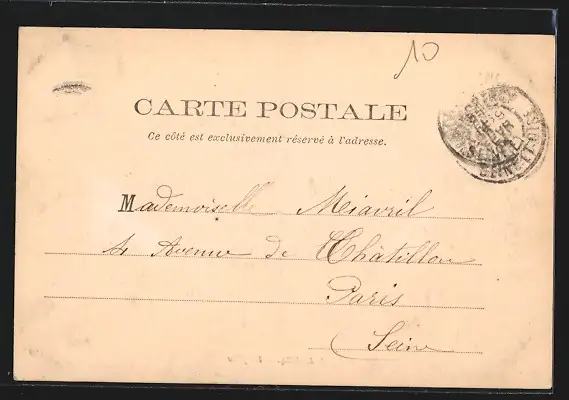 10
CARTE POSTALE
Ce côté est exclusivement réservé à l'adresse.
Mademoiselle Méiavril
4 Avenue de Châtillon
Paris
Seine